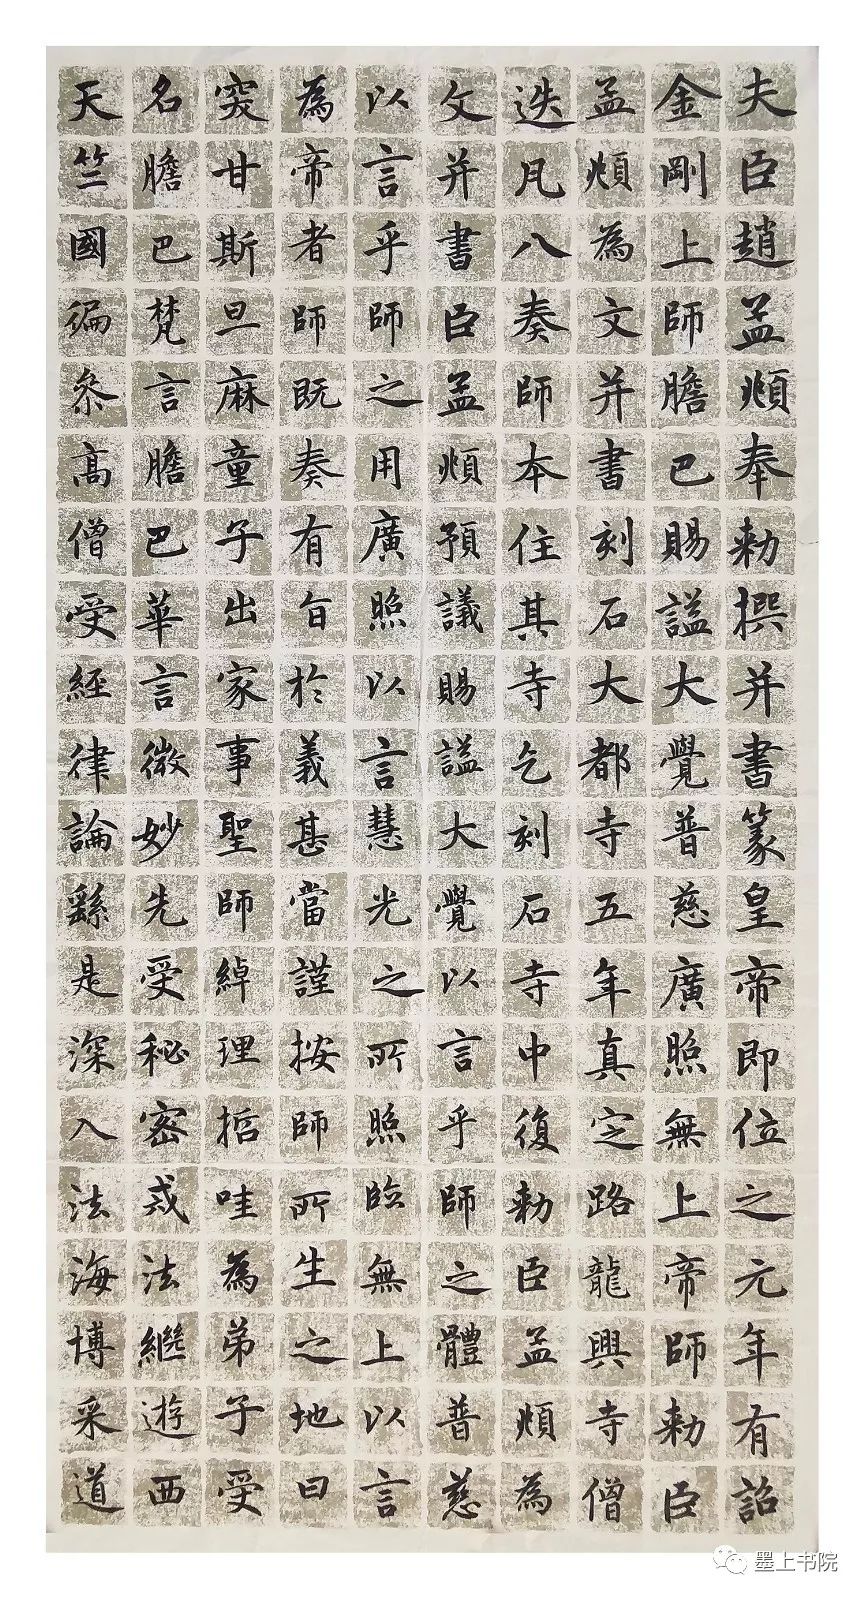 夫臣趙孟頫奉勅撰并書篆皇帝即位之元年有詔
金剛上師膽巴賜謚大覺普慈廣照無上帝師勅臣
孟頫為文并書刻石大都寺五年真定路龍興寺僧
迭凡八奏師本住其寺乞刻石寺中復勅臣孟頫為
文并書臣孟頫預議賜謚大覺以言乎師之體普慈
以言乎師之用廣照以言慧光之所照臨無上以言
為帝者師既奏有旨於義甚當謹按師所生之地曰
突甘斯旦麻童子出家事聖師綽理哲哇為弟子受
名膽巴梵言膽巴華言微妙先受秘密戒法繼遊西
天竺國徧參高僧受經律論繇是深入法海博采道
墨上书院